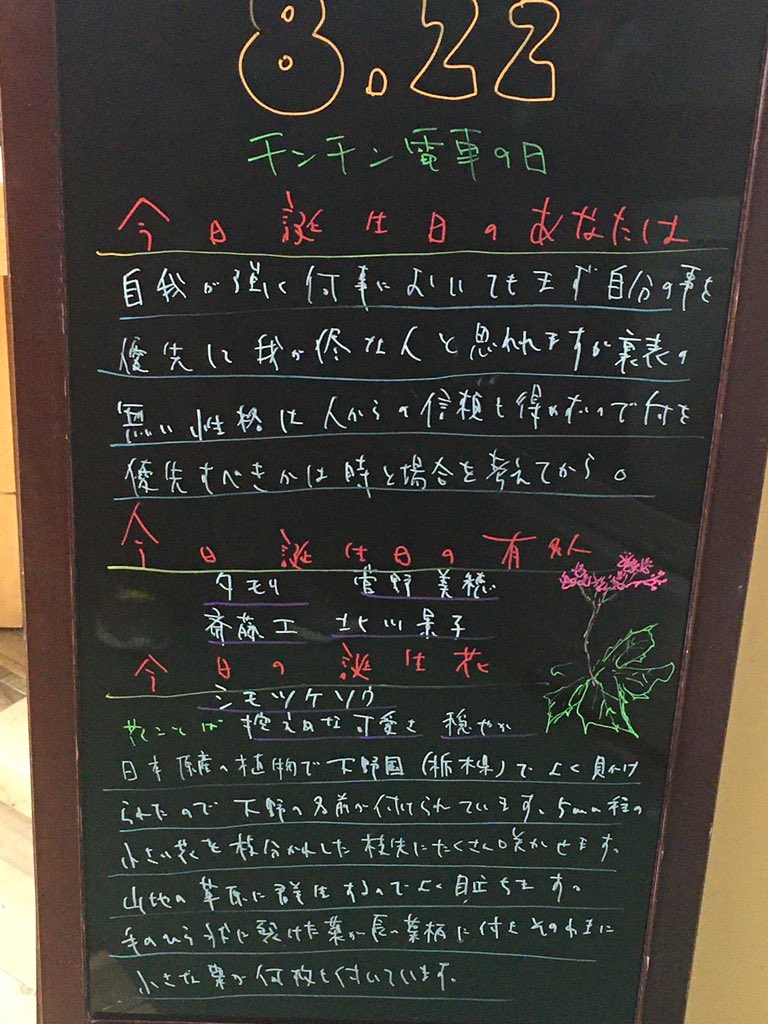 8.22
チンチン電車の日
今日誕生日のあなたは
自我が強く何事においてもまず自分の事を
優先して我が侭な人と思われますが裏表の
無い性格は人からの信頼も得やすいので何を
優先すべきかは時と場合を考えてから。
今日誕生日の有名人
タモリ 菅野美穂
斎藤工 北川景子
今日の誕生花
シモツケソウ
花ことば 控えめな可愛さ 穏やか
日本原産の植物で下野国(栃木県)でよく見かけ
られたので下野の名前が付けられています。5mm程の
小さい花を枝分かれした枝先にたくさん咲かせます。
山地の草原に群生するのでよく目立ちます。
手のひら状に裂けた葉が長い葉柄に付きその下に
小さな葉が何枚も付いています。